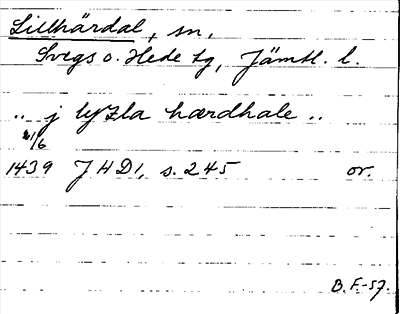 Lillhärdal, sn,
Svegs o. Hede tg, Jämtl. l.
.. j lytzla hærdhale ..
1/6
1439 JHD1, s. 245 or.
B.F.-57.